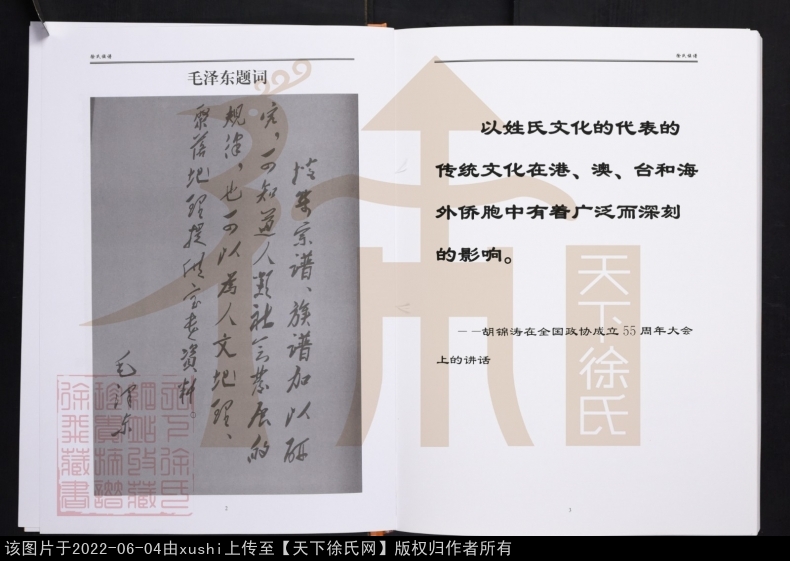 徐氏族谱
毛泽东题词
集宗谱、族谱加以研
究，可知道人類社会发展的
规律，也可以为人文地理、
聚落地理提供宝贵资料。
毛泽东
2
徐氏族谱
以姓氏文化的代表的
传统文化在港、澳、台和海
外侨胞中有着广泛而深刻
的影响。
——胡锦涛在全国政协成立 55 周年大会
上的讲话
3
天下徐氏
该图片于2022-06-04由xushi上传至【天下徐氏网】版权归作者所有